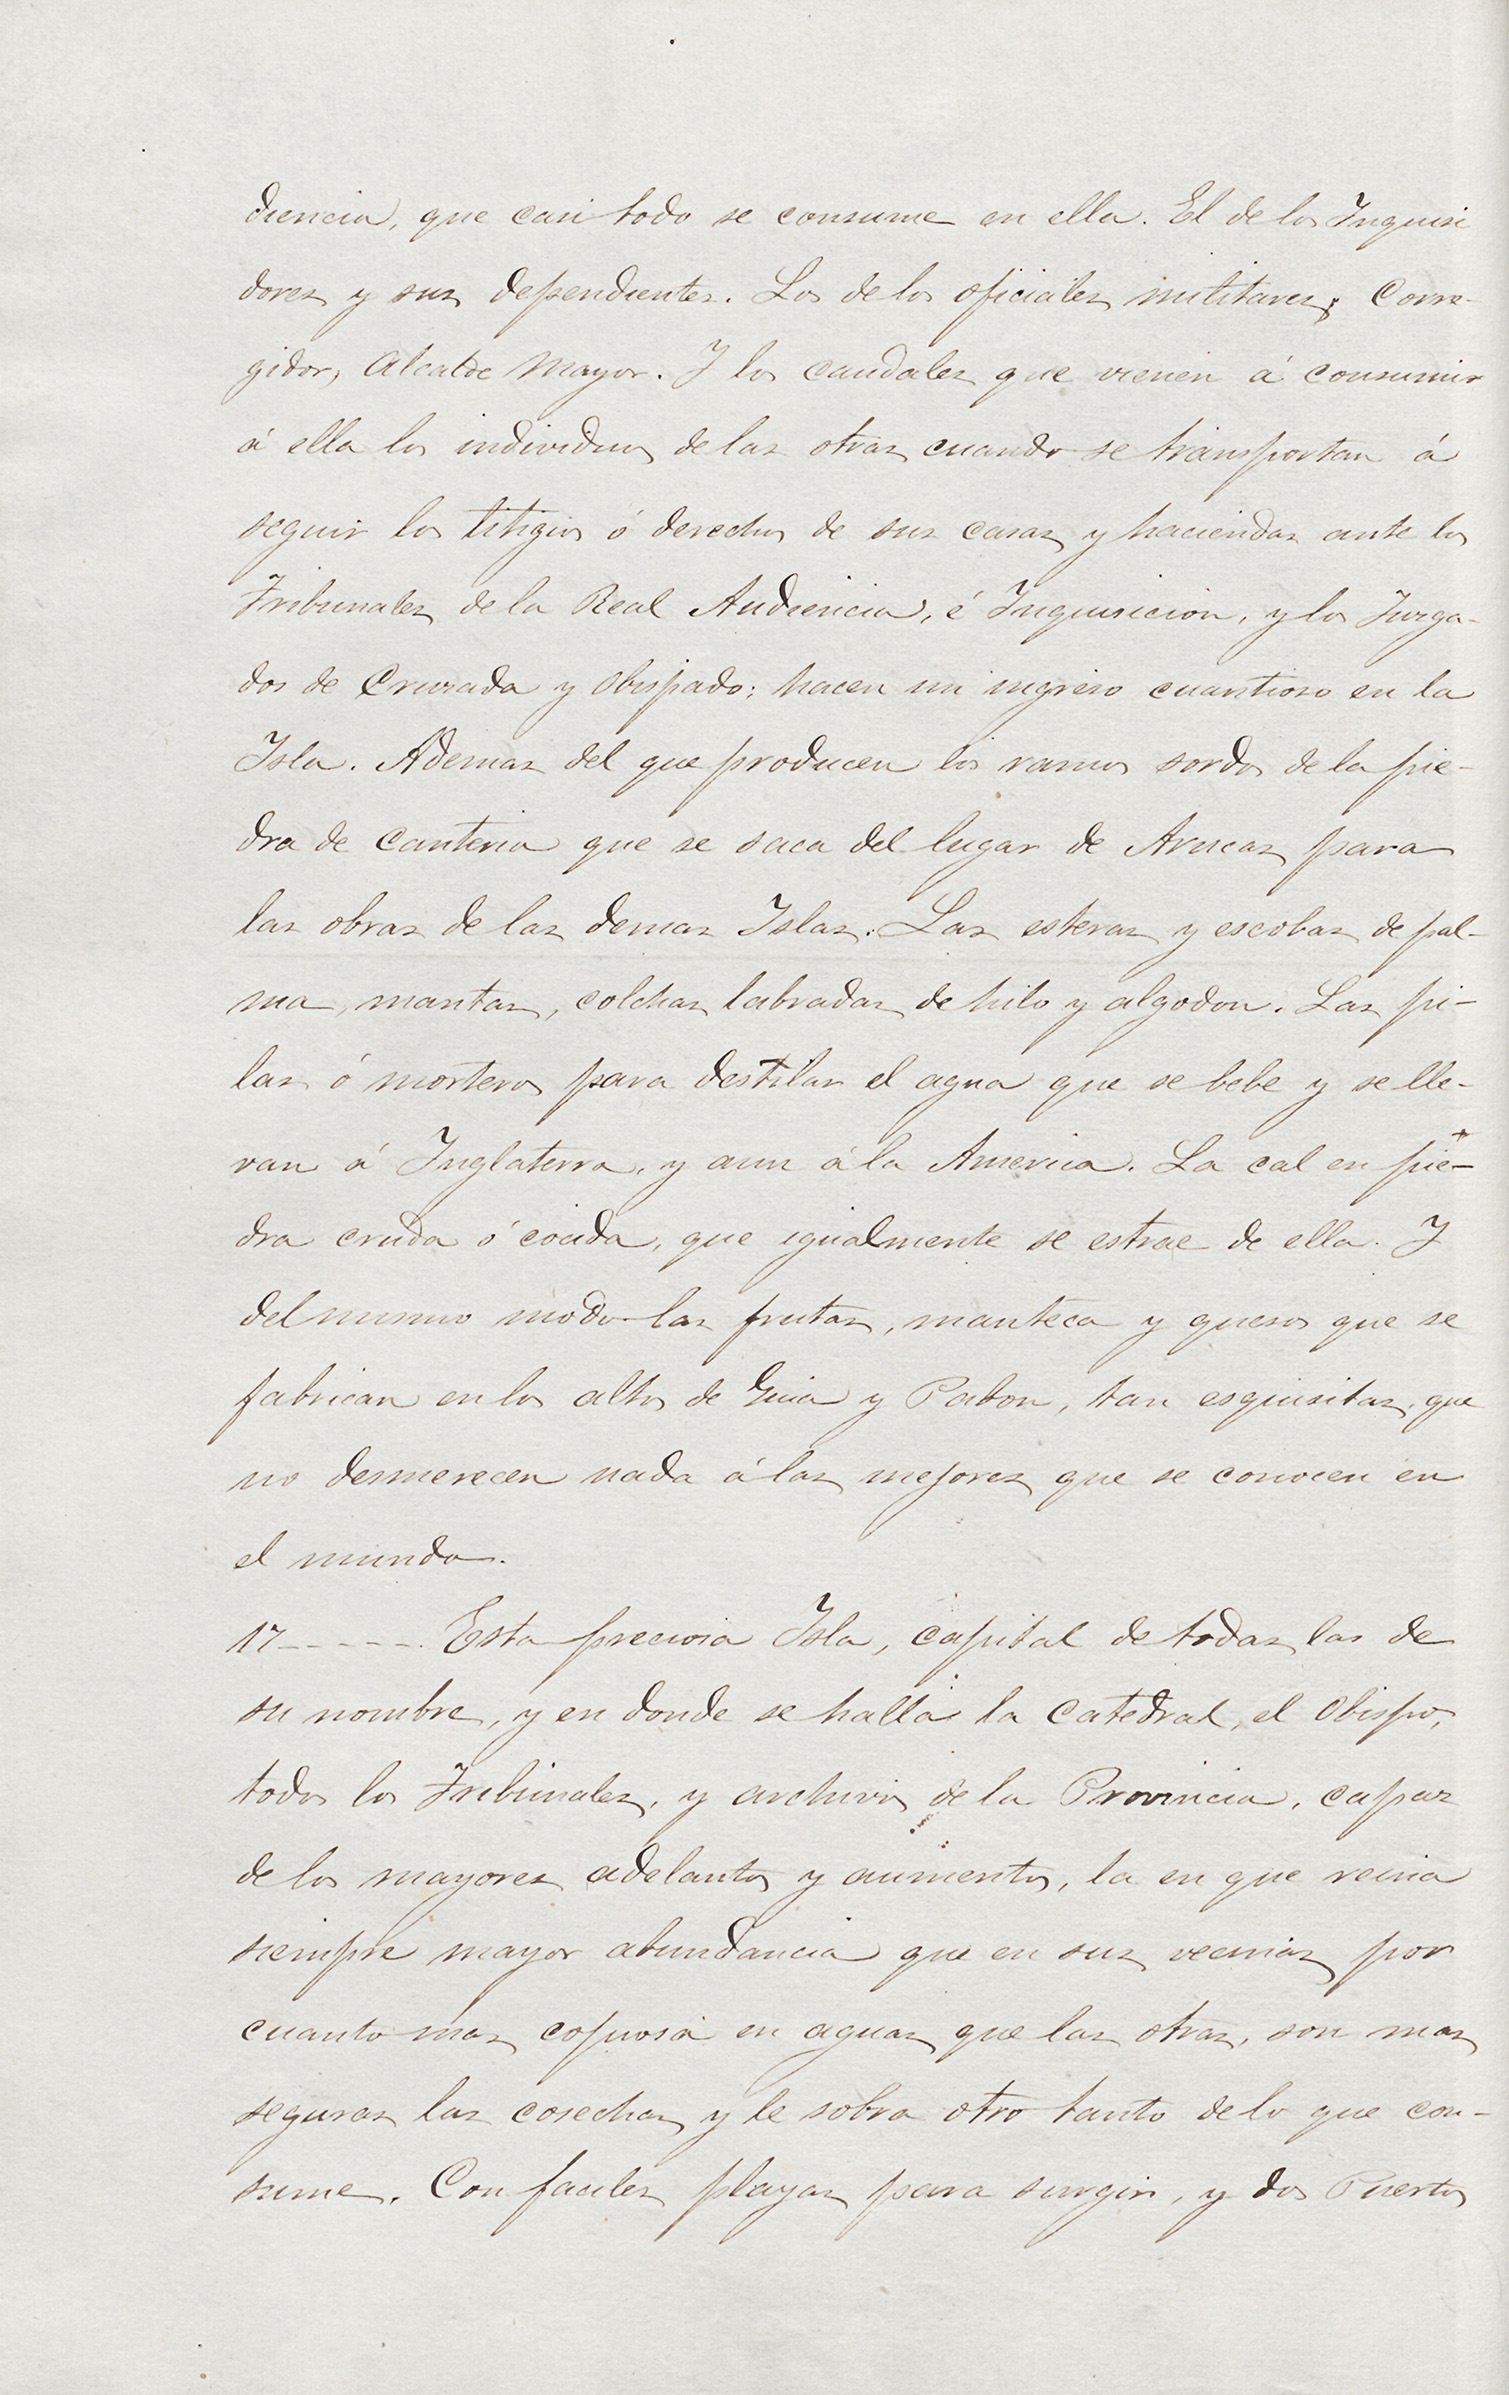 diencia, que casi todo se consume en ella. El de los Inquisi
dores y sus dependientes. Los de los oficiales militares; Corre-
gidor, Alcalde Mayor. Y los caudales que vienen á consumir
á ella los individuos de las otras cuando se transportan á
seguir los litigios ó derechos de sus casas y haciendas ante los
Tribunales de la Real Audiencia, é Inquisicion, y los Juzga-
dos de Cruzada y Obispado; hacen un ingreso cuantioso en la
Isla. Ademas del que producen los ramos sordos de la pie-
dra de canteria que se saca del lugar de Arucas para
las obras de las demas Islas. Las esteras y escobas de pal-
ma, mantas, colchas labradas de hilo y algodon. Las pi-
las ó morteros para destilar el agua que se bebe y se lle-
van á Inglaterra, y aun á la America. La cal en pie-
dra cruda ó cocida, que igualmente se estrae de ella. Y
del mismo modo las frutas, manteca y quesos que se
fabrican en los altos de Guia y Pabon, tan esquisitas, que
no desmerecen nada á las mejores que se conocen en
el mundo.
17 - - - - - . Esta preciosa Isla, capital de todas las de
su nombre, y en donde se halla la Catedral, el Obispo,
todos los Tribunales, y archivos de la Provincia, capaz
de los mayores adelantos y aumentos, la en que reina
siempre mayor abundancia que en sus vecinas por
cuanto mas copiosa en aguas que las otras, son mas
seguras las cosechas y le sobra otro tanto de lo que con-
sume. Con faciles playas para surgir, y dos Puertos